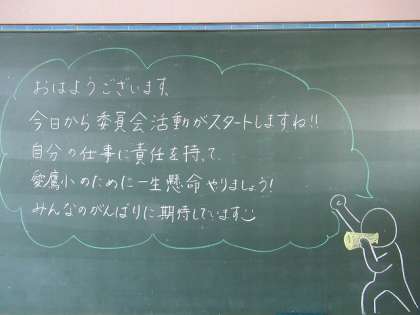 おはようございます。
今日から委員会活動がスタートしますね!!
自分の仕事に責任を持って
愛鷹小のために一生懸命やりましょう!
みんなのがんばりに期待しています